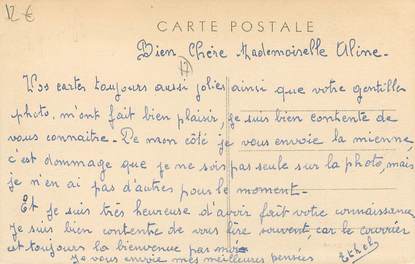 12 €
CARTE POSTALE
Bien Chère Mademoiselle Aline.
Vos cartes toujours aussi jolies ainsi que votre gentille
photo, m'ont fait bien plaisir, je suis bien contente de
vous connaître. De mon côté je vous envoie la mienne
c'est dommage que je ne sois pas seule sur la photo, mais
je n'en ai pas d'autres pour le moment.
Et je suis très heureuse d'avoir fait votre connaissance
je suis bien contente de vous lire souvent, car le courrier
est toujours la bienvenue
je vous envoie mes meilleures pensées
Ethel